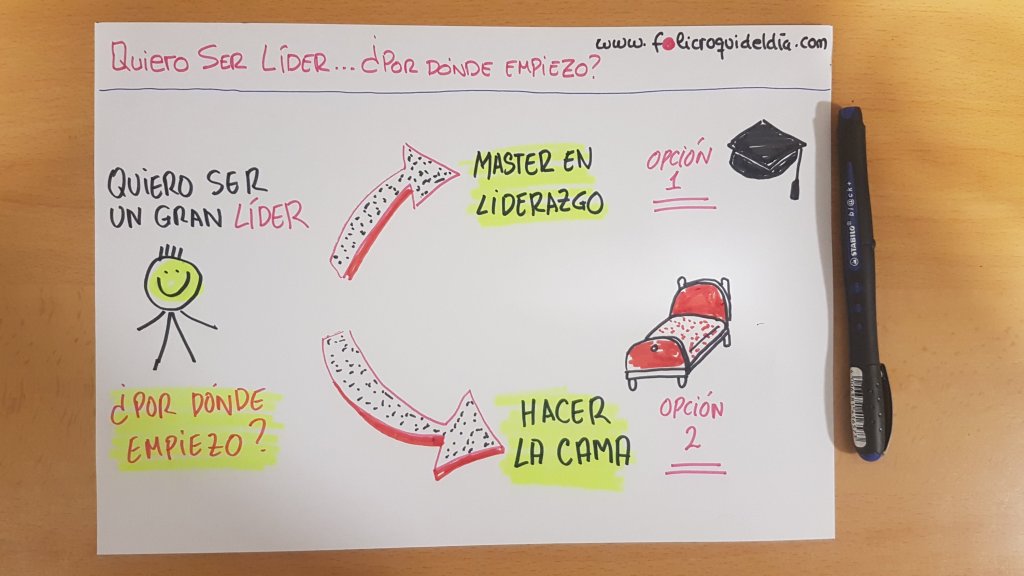 QUIERO SER LÍDER... ¿POR DÓNDE EMPIEZO?
www.folicroquideldía.com
QUIERO SER
UN GRAN LÍDER
¿POR DÓNDE
EMPIEZO?
MASTER EN
LIDERAZGO
OPCIÓN
1
HACER
LA CAMA
OPCIÓN
2
STABILO bl@ck+